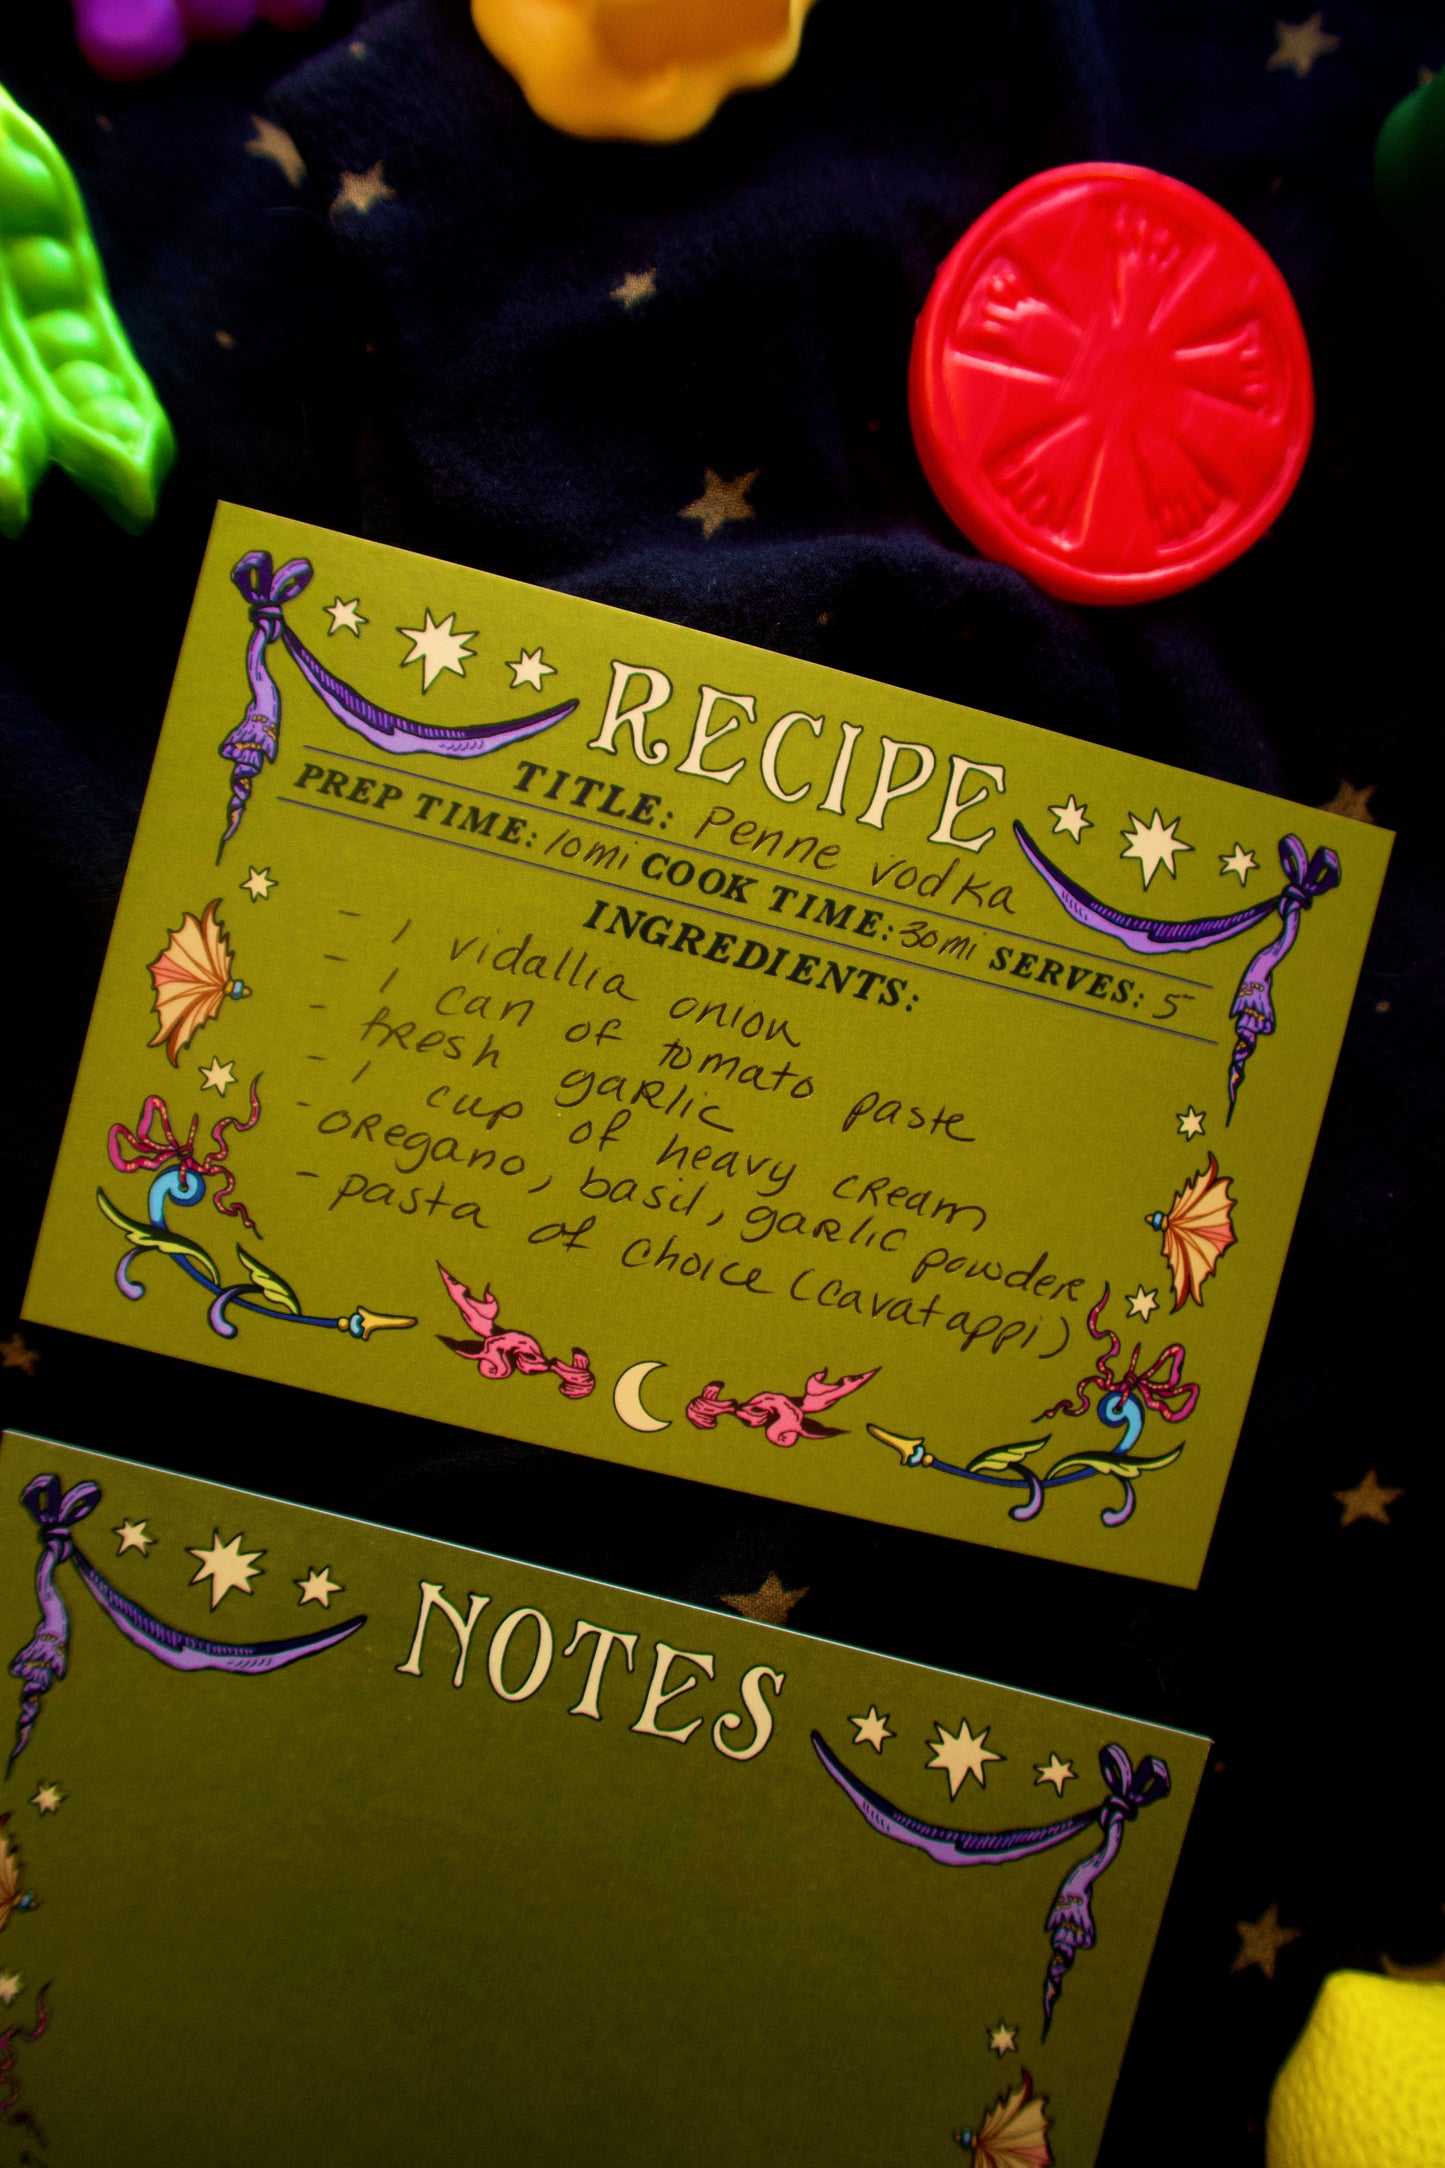 RECIPE
TITLE: Penne vodka
PREP TIME: 10mi COOK TIME: 30mi SERVES: 5
INGREDIENTS:
- 1 vidallia onion
- 1 can of tomato paste
- fresh garlic
- 1 cup of heavy cream
- oregano, basil, garlic powder
- pasta of choice (cavatappi)
NOTES